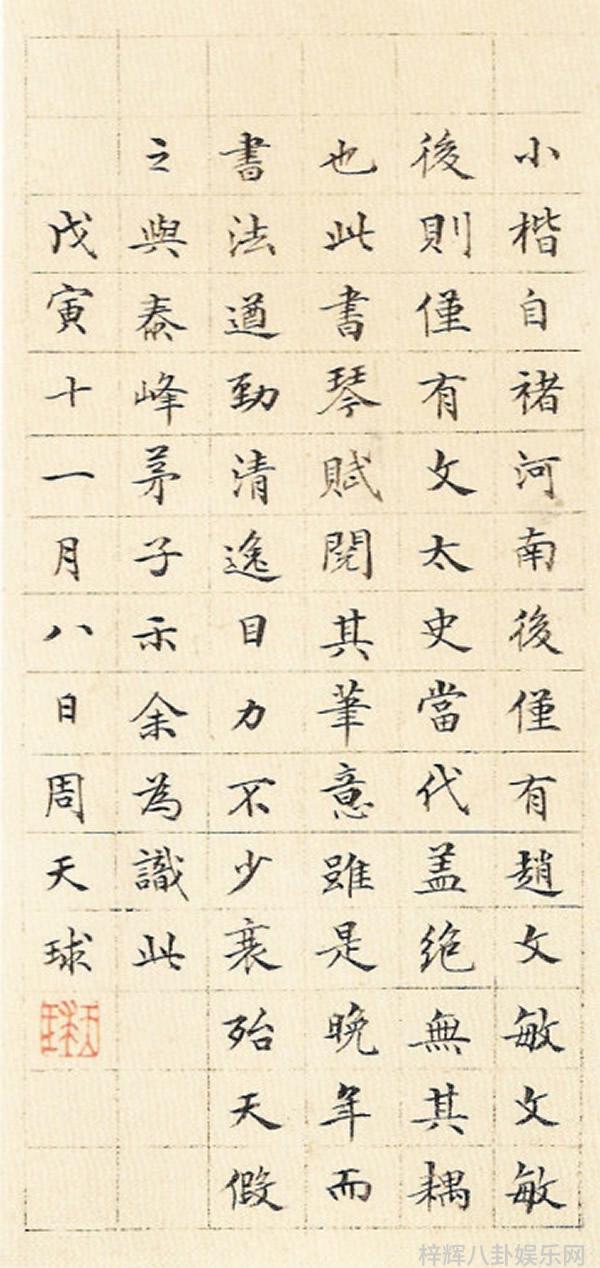 小楷自褚河南後僅有趙文敏文敏
後則僅有文太史當代盖絶無其耦
也此書琴賦閱其筆意雖是晚年而
書法遒勁清逸目力不少衰殆天假
之與泰峰茅子示余為識此
戊寅十一月八日周天球
梓辉八卦娱乐网